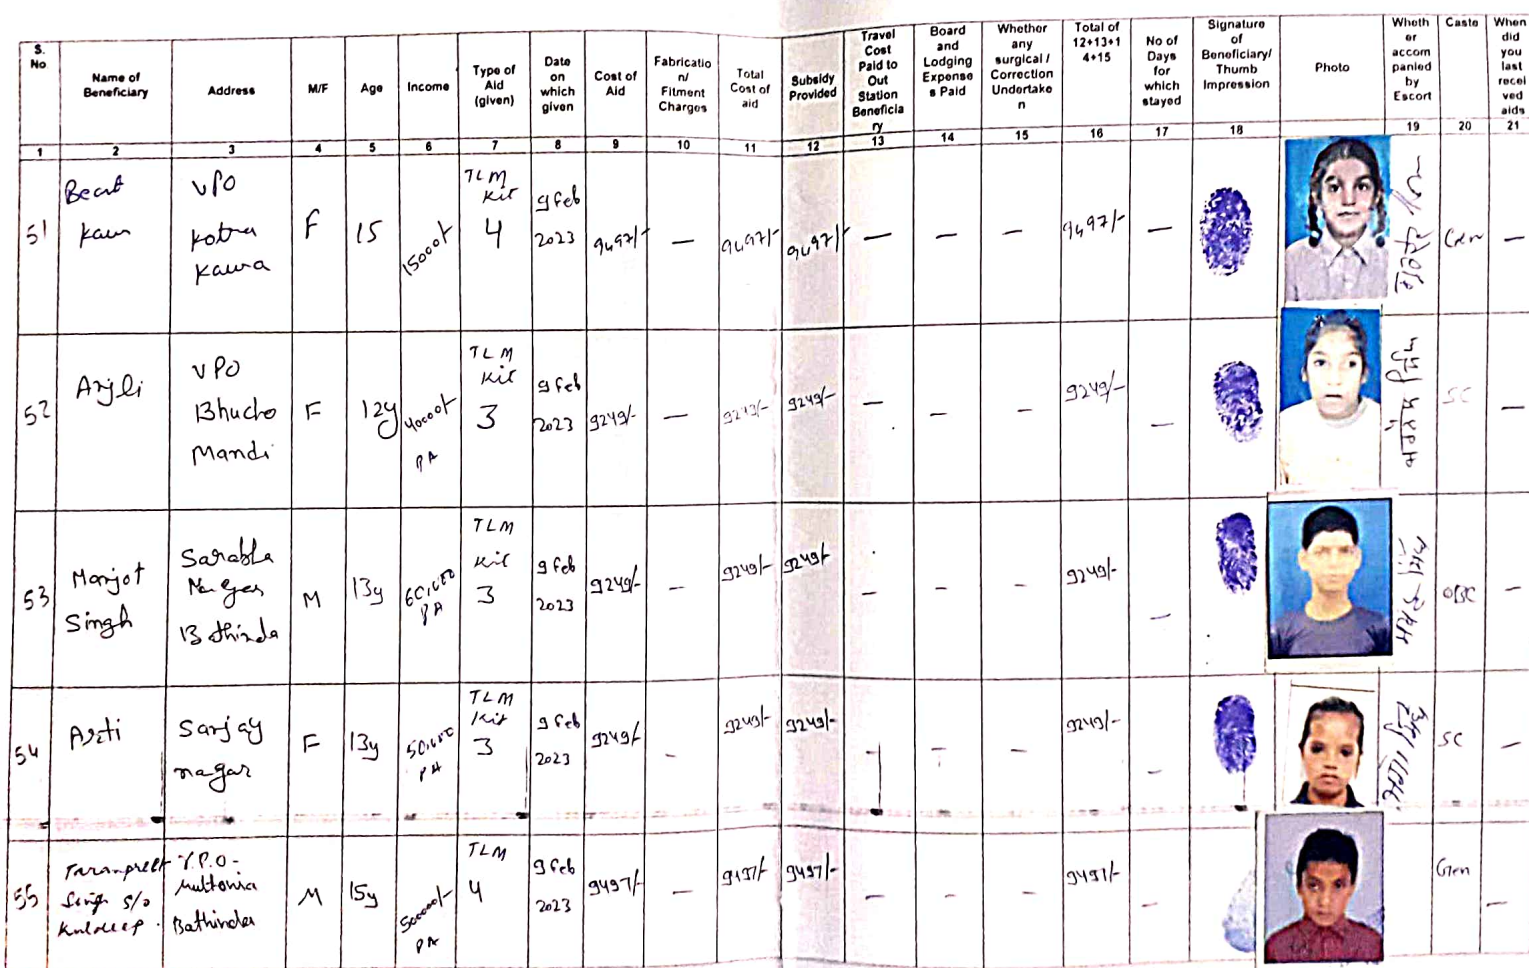 S. No
Name of Beneficiary
Address
M/F
Age
Income
Type of Aid (given)
Date on which given
Cost of Aid
Fabricatio n/ Fitment Charges
Total Cost of aid
Subsidy Provided
Travel Cost Paid to Out Station Beneficia ry
Board and Lodging Expense s Paid
Whether any surgical / Correction Undertake n
Total of 12+13+1 4+15
No of Days for which stayed
Signature of Beneficiary/ Thumb Impression
Photo
Wheth er accom panied by Escort
Caste
When did you last recei ved aids
1 2 3 4 5 6 7 8 9 10 11 12 13 14 15 16 17 18 19 20 21
51 Kaur VPO Kotra Kaura F 15 15000/- TLM Kit 4 9 Feb 2023 9497/- — 9497/- 9497/- — — — 9497/- — Gen —
52 VPO Bhucho Mandi F 12y 40000/- PA TLM Kit 3 9 Feb 2023 9249/- — 9249/- 9249/- — — — 9249/- — SC —
53 Manjot Singh Sarabha Nagar Bathinda M 13y 60,000 PA TLM Kit 3 9 Feb 2023 9249/- — 9249/- 9249/- — — — 9249/- — OBC —
54 Arti Sanjay nagar F 13y 50,000 PA TLM Kit 3 9 Feb 2023 9249/- — 9249/- 9249/- — — — 9249/- — SC —
55 Taranpreet Singh S/o Kuldeep V.P.O - Multonia Bathinda M 15y 500000/- PA TLM 4 9 Feb 2023 9497/- — 9497/- 9497/- — — — 9497/- — Gen —